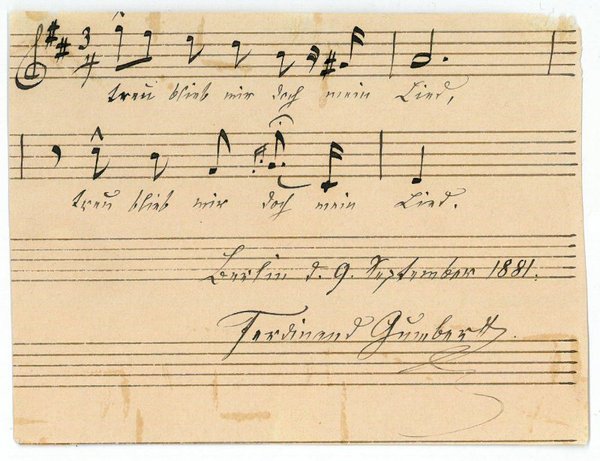 3/4
treu blieb mir doch mein Lied,
treu blieb mir doch mein Lied.
Berlin d. 9. September 1881.
Ferdinand Gumbert.